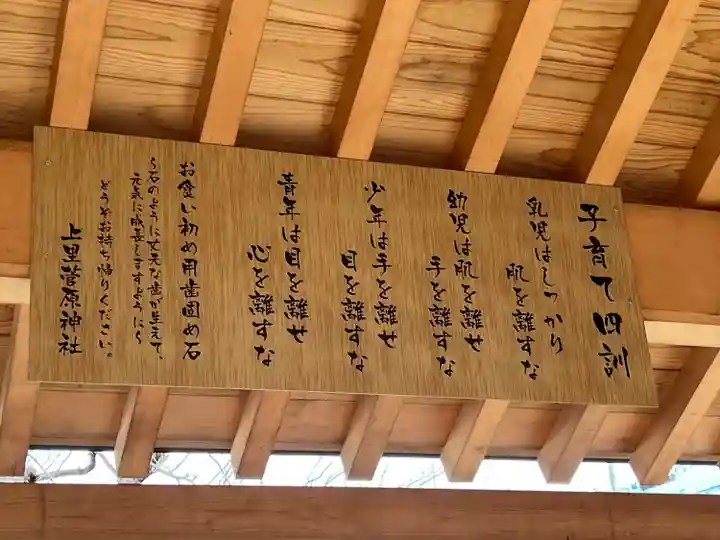 子育て四訓
乳児はしっかり
肌を離すな
幼児は肌を離せ
手を離すな
少年は手を離せ
目を離すな
青年は目を離せ
心を離すな
お食い初め用歯固め石
ら石のように丈夫な歯が生えて、
元気に成長しますようにら
どうぞお持ち帰りください。
上里菅原神社